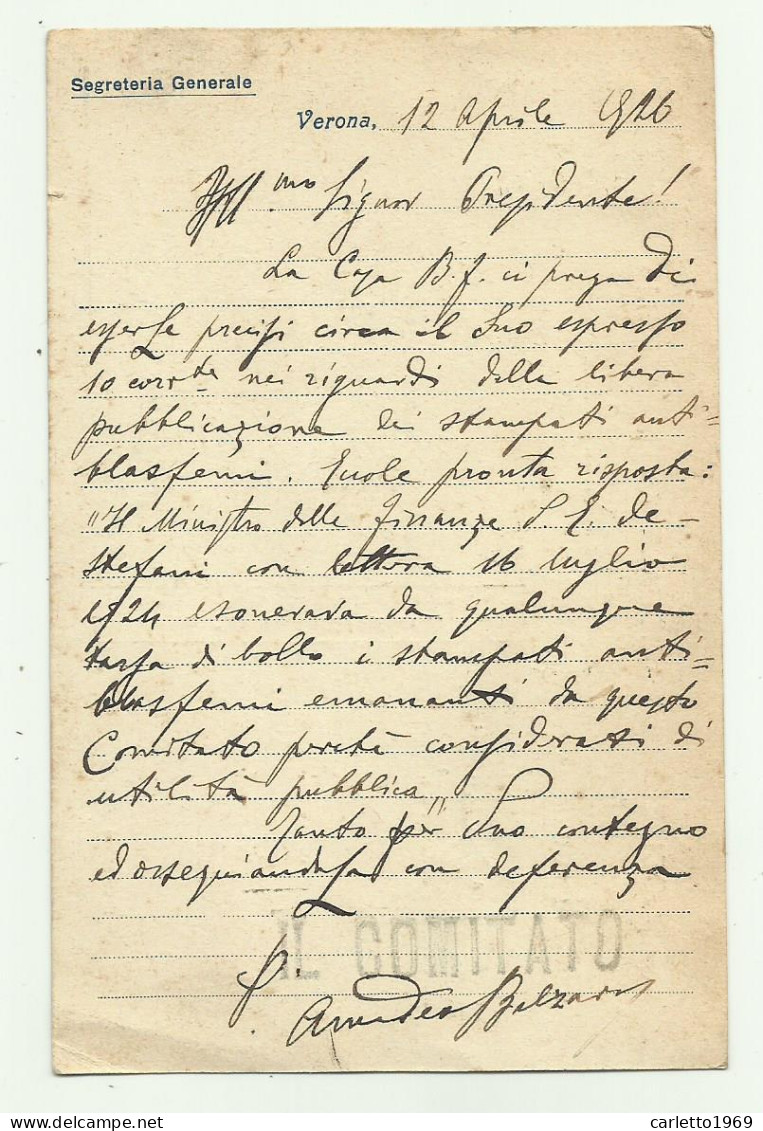 Segreteria Generale
Verona, 12 Aprile 1926
Ill.mo Signor Presidente!
La Casa B. f. ci prega di
esserLe precisi circa il Suo espresso
10 corr.te nei riguardi della libera
pubblicazione dei stampati anti=
blasfemi. Eccole pronta risposta:
"Il Ministro delle finanze S. E. de-
Stefani con lettera 16 luglio
1924 esonerava da qualunque
tassa di bollo i stampati anti=
blasfemi emananti da questo
Comitato perchè considerati di
utilità pubblica"
Tanto per Suo contegno
ed ossequiandoLa con deferenza
IL COMITATO
Amedeo Balzaro
carletto1969